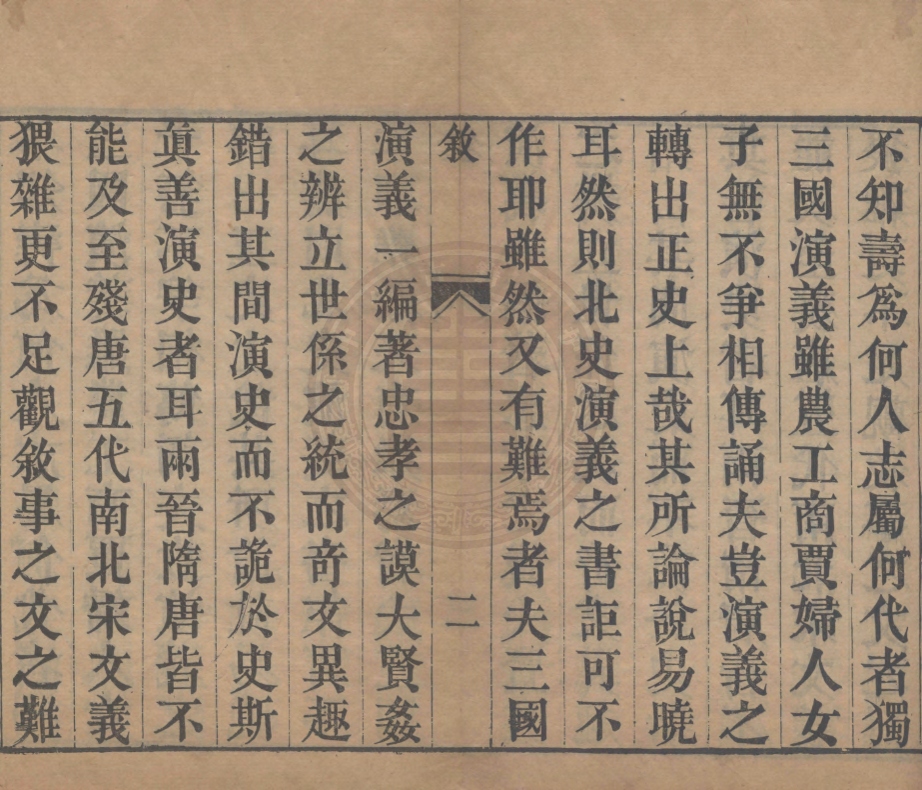 不知壽爲何人志屬何代者獨
三國演義雖農工商賈婦人女
子無不爭相傳誦夫豈演義之
轉出正史上哉其所論說易曉
耳然則北史演義之書詎可不
作耶雖然又有難焉者夫三國
敘 二
演義一編著忠孝之謨大賢姦
之辨立世係之統而奇文異趣
錯出其間演史而不詭於史斯
眞善演史者耳兩晉隋唐皆不
能及至殘唐五代南北宋文義
猥雜更不足觀敘事之文之難